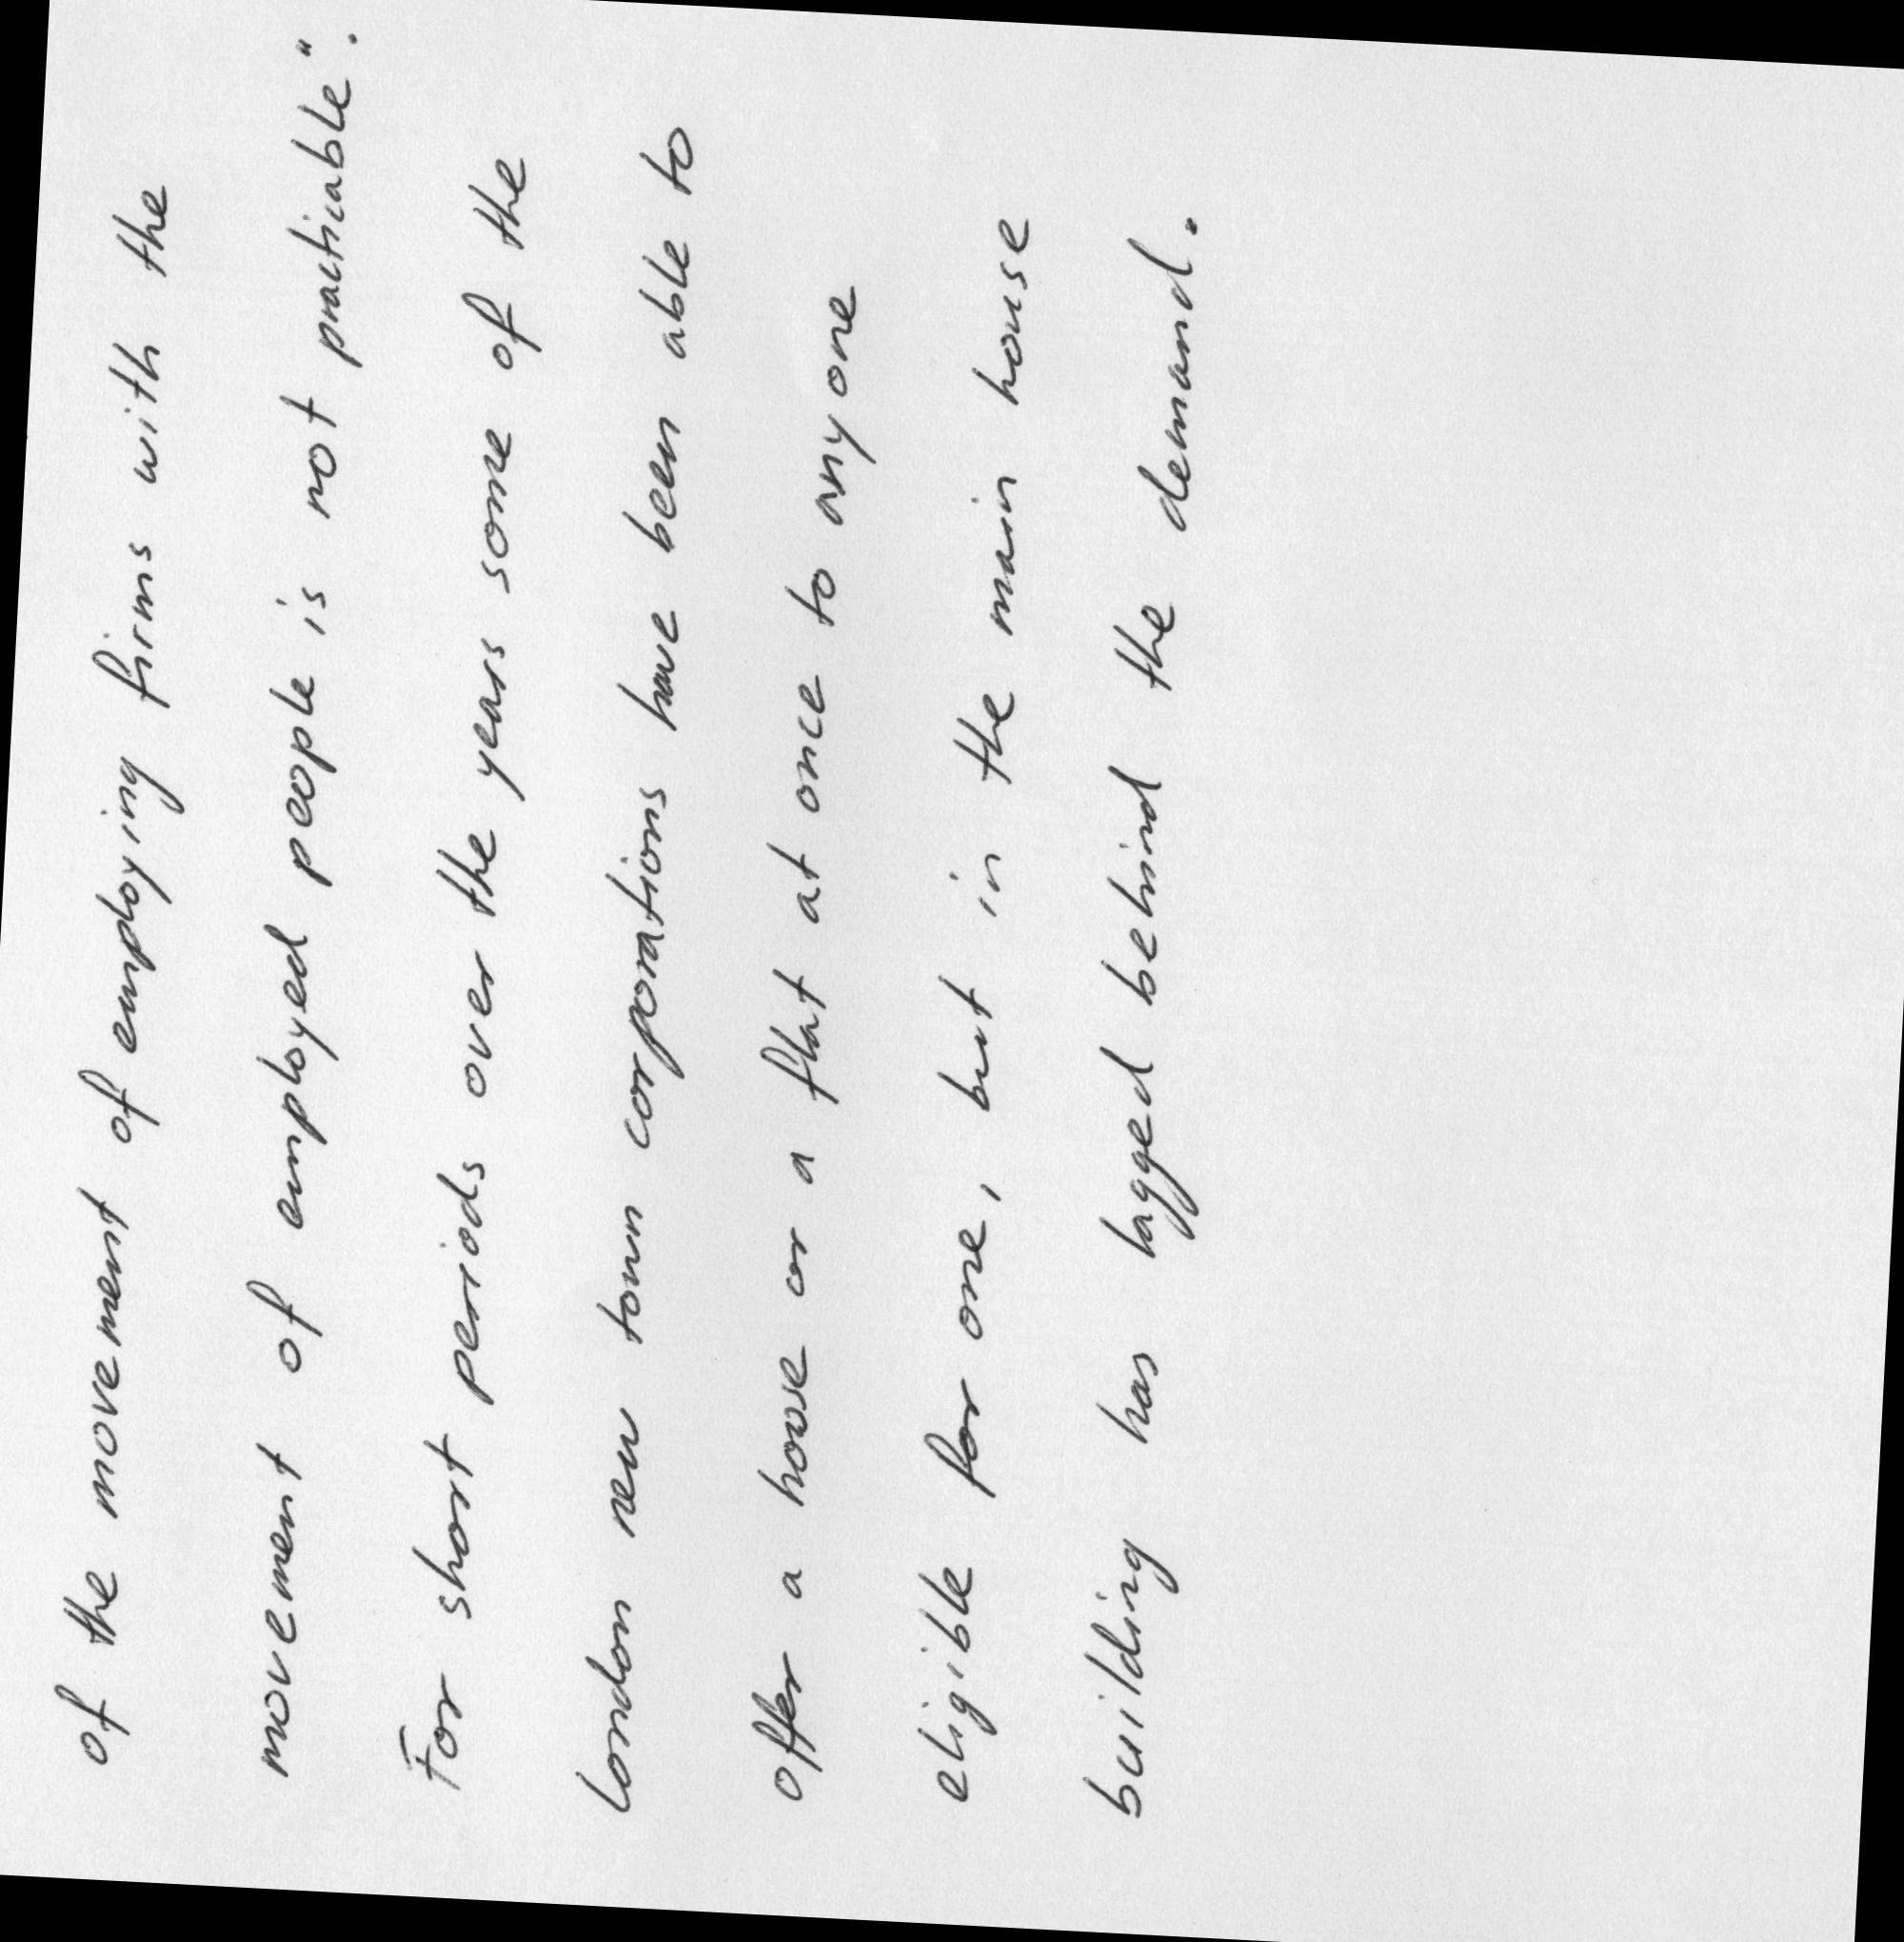 of the movement of employing firms with the
movement of employed people is not practicable".
For short periods over the years some of the
London new town corporations have been able to
offer a house or a flat at once to anyone
eligible for one, but in the main house
building has lagged behind the demand.